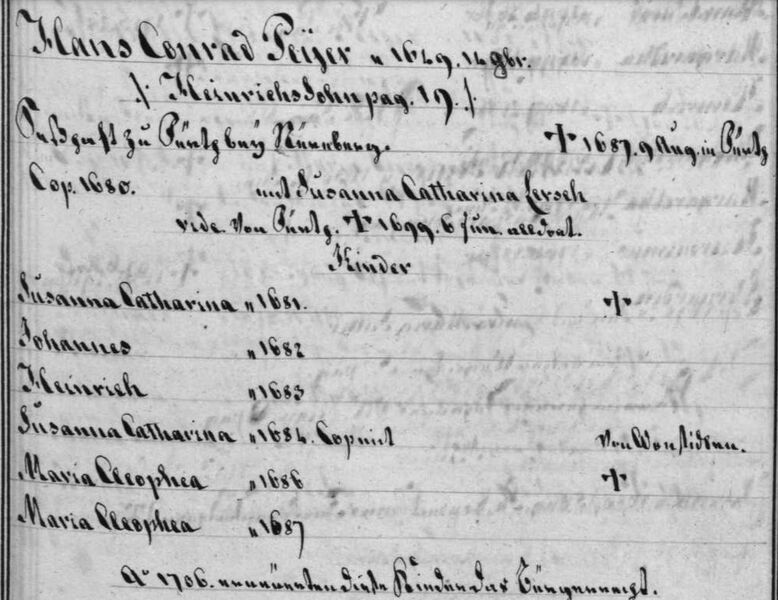 Hans Conrad Peijer " 1649. 14 9br.
./. Heinrichs Sohn pag. 19. /.
Seßhaft zu Püntz beÿ Nürnberg. ✝ 1687. 9 Aug. in Püntz
Cop. 1680. mit Susanna Catharina Lersch
vide. von Püntz. ✝ 1699. 6 Jun. alldort.
Kinder
Susanna Catharina " 1681. ✝
Johannes " 1682
Heinrich " 1683
Susanna Catharina " 1684. Cop mit von Wonsidlen.
Maria Cleophea " 1686 ✝
Maria Cleophea " 1687
Aº 1706. erneüerten diese Kinder das Burgerrecht.